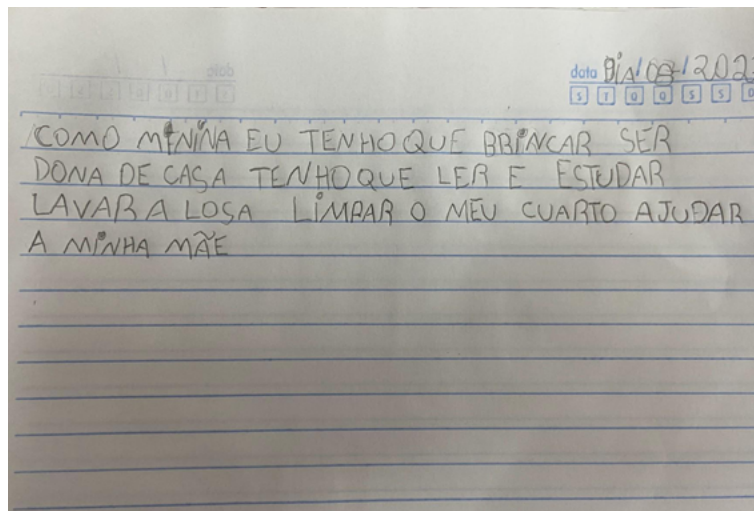 data DIA/09/202
S T Q Q S S D
COMO MININA EU TENHO QUE BRINCAR SER
DONA DE CASA TENHO QUE LER E ESTUDAR
LAVAR A LOSA LIMPAR O MEU CUARTO AJUDAR
A MINHA MÃE